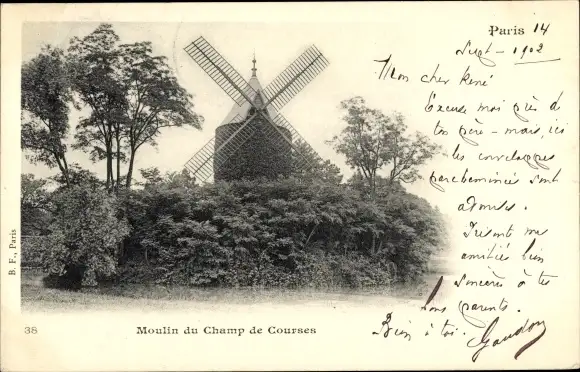 Paris 14
Sept - 1902
Mon cher René
Excuse moi près de
ton père - mais, ici
les enveloppes
parcheminées sont
Présente mes
amitiés bien
sincères à tes
bons parents.
Bien à toi. Gaudon
B. F., Paris
38 Moulin du Champ de Courses